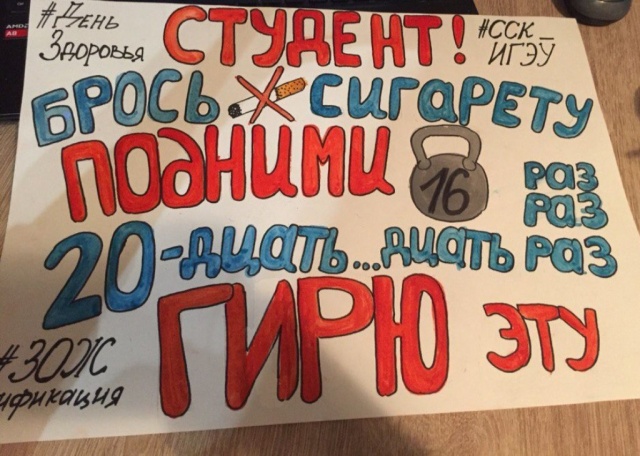 #День
Здоровья
СТУДЕНТ!
#ССК
ИГЭУ
БРОСЬ СИГАРЕТУ
ПОДНИМИ
16
раз
раз
20-дцать...дцать раз
ГИРЮ ЭТУ
#ЗОЖ
ификация
AMD
A8